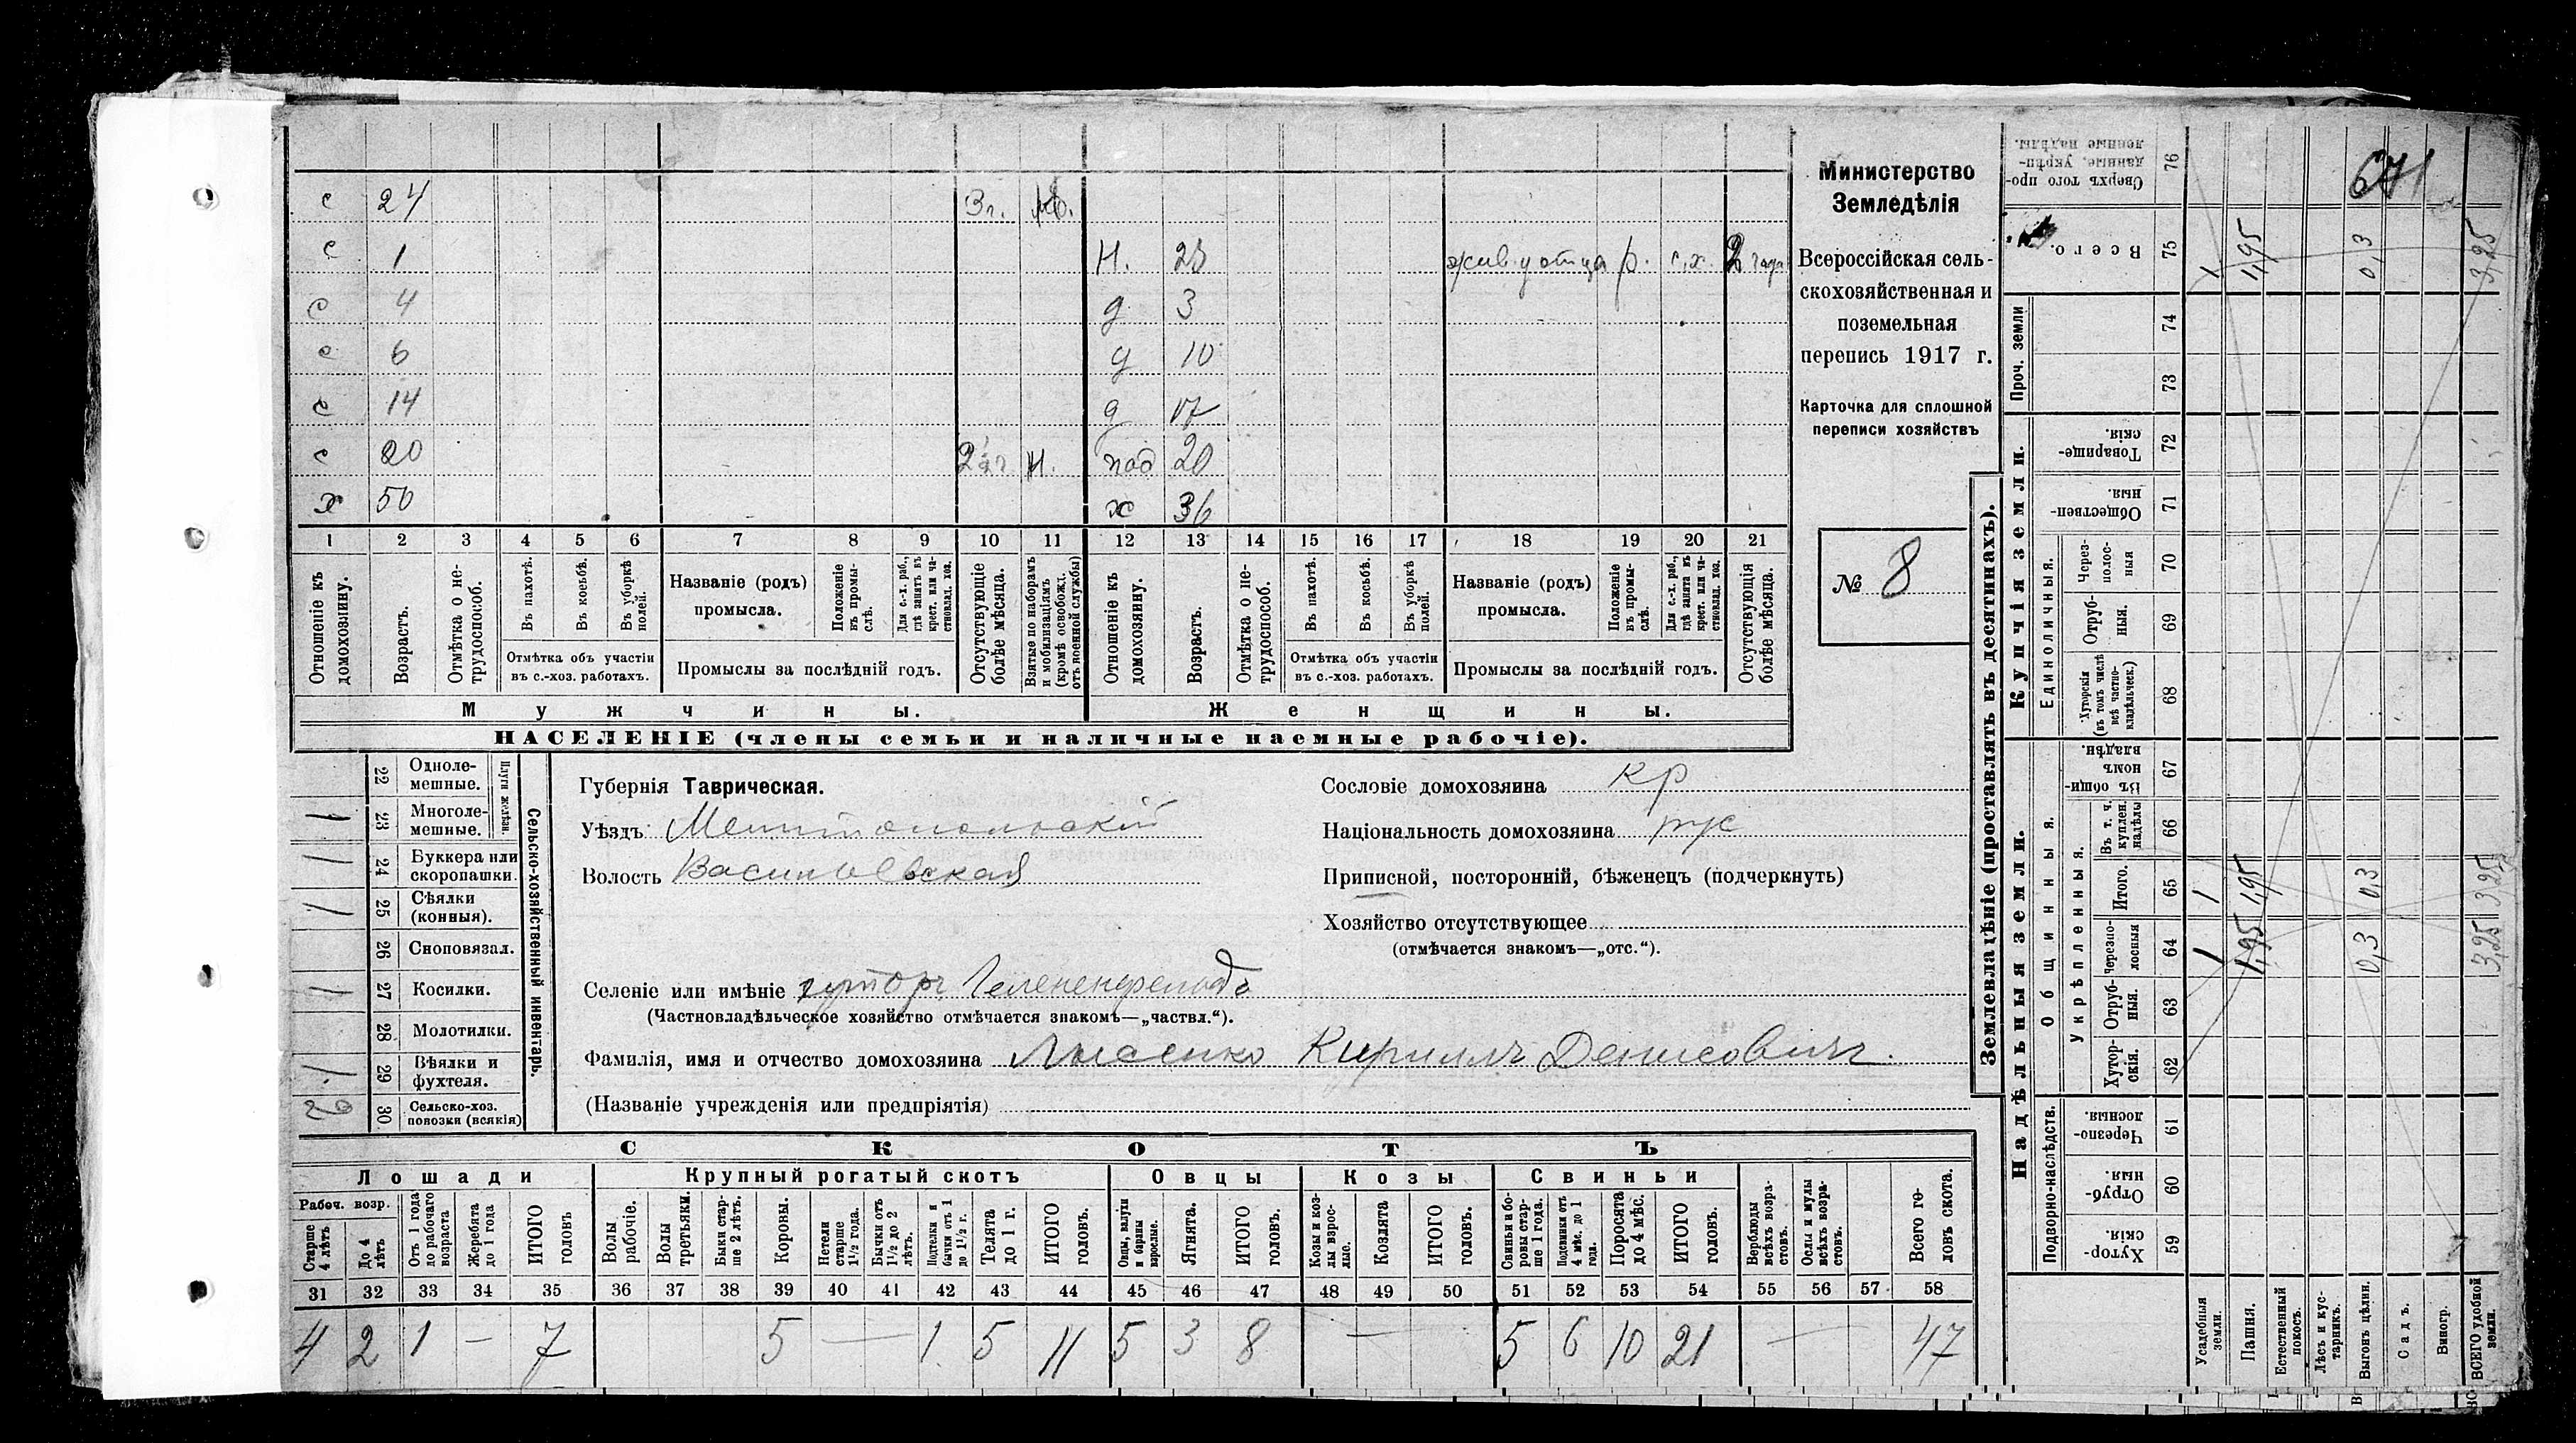 с 24 3 г. М.
с 1 Н. 23 жив у отца р. с.х. 2 года
с 4 д 3
с 6 д 10
с 14 д 17
с 20 2½ г Н. пад 20
х 50 ж 36
1 2 3 4 5 6 7 8 9 10 11 12 13 14 15 16 17 18 19 20 21
Отношеніе къ домохозяину.
Возрастъ.
Отмѣтка о не-трудоспособ.
Въ пахотѣ.
Въ косьбѣ.
Въ уборкѣ полей.
Отмѣтка объ участіи
въ с.-хоз. работахъ.
Названіе (родъ)
промысла.
Положеніе въ промы-слѣ.
Для с.-х. раб., гдѣ занятъ въ крест. или ча-стновлад. хоз.
Промыслы за послѣдній годъ.
Отсутствующіе болѣе мѣсяца.
Взятые по наборамъ и мобилизаціямъ (кромѣ освобожд. отъ военной службы)
Отношеніе къ домохозяину.
Возрастъ.
Отмѣтка о не-трудоспособ.
Въ пахотѣ.
Въ косьбѣ.
Въ уборкѣ полей.
Отмѣтка объ участіи
въ с.-хоз. работахъ.
Названіе (родъ)
промысла.
Положеніе въ промы-слѣ.
Для с.-х. раб., гдѣ занята въ крест. или ча-стновлад. хоз.
Промыслы за послѣдній годъ.
Отсутствующія болѣе мѣсяца.
Мужчины.
Женщины.
НАСЕЛЕНІЕ (члены семьи и наличные наемные рабочіе).
Министерство
Земледѣлія
Всероссійская сель-
скохозяйственная и
поземельная
перепись 1917 г.
Карточка для сплошной
переписи хозяйствъ
№ 8
22 Одноле-мешные.
1 23 Многоле-мешные.
Плуги желѣзн.
1 24 Буккера или скоропашки.
1 25 Сѣялки (конныя).
26 Сноповязал.
1 27 Косилки.
28 Молотилки.
1 29 Вѣялки и фухтеля.
2 30 Сельско-хоз. повозки (всякія)
Сельско-хозяйственный инвентарь.
Губернія Таврическая.
Уѣздъ Мелитопольскій
Волость Васильевская
Сословіе домохозяина кр
Національность домохозяина рус
Приписной, посторонній, бѣженецъ (подчеркнуть)
Хозяйство отсутствующее
(отмѣчается знакомъ—„отс.“).
Селеніе или имѣніе хуторъ Гелененфельдъ
(Частновладѣльческое хозяйство отмѣчается знакомъ—„частвл.“).
Фамилія, имя и отчество домохозяина Лысенко Кириллъ Денисовичъ.
(Названіе учрежденія или предпріятія)
СКОТЪ
Лошади
Рабоч. возр.
Старше 4 лѣтъ
До 4 лѣтъ
Отъ 1 года до рабочаго возраста
Жеребята до 1 года
ИТОГО головъ
Крупный рогатый скотъ
Волы рабочіе.
Волы третьяки.
Быки стар-ше 2 лѣтъ.
Коровы.
Нетели старше 1½ года.
Бычки отъ 1½ до 2 лѣтъ.
Подтелки и бычки отъ 1 до 1½ г.
Телята до 1 г.
ИТОГО головъ.
Овцы
Овцы, валухи и бараны взрослые.
Ягнята.
ИТОГО головъ.
Козы
Козы и коз-лы взрос-лые.
Козлята
ИТОГО головъ.
Свиньи
Свиньи и бо-ровы стар-ше 1 года.
Подсвинки отъ 4 мѣс. до 1 года.
Поросята до 4 мѣс.
ИТОГО головъ.
Верблюды всѣхъ возра-стовъ.
Ослы и мулы всѣхъ возра-стовъ.
Всего го-ловъ скота.
31 32 33 34 35 36 37 38 39 40 41 42 43 44 45 46 47 48 49 50 51 52 53 54 55 56 57 58
4 2 1 — 7 5 — 1 5 11 5 3 8 — 5 6 10 21 — 47
Землевладѣніе (проставлять въ десятинахъ).
Купчія земли.
Надѣльныя земли.
Проч. земли
Единоличныя.
Общинныя.
Укрѣпленныя.
Подворно-наслѣдств.
Сверхъ того про-данные, укрѣп-ленные надѣлы. 76
Всего. 75 1 1,95 0,3 3,25
74
73
Товарище-скія. 72
Обществен-ныя. 71
Через-полос-ныя 70
Отруб-ныя. 69
Хуторскія (въ томъ числѣ всѣ частно-владѣльческ.) 68
Въ общи-номъ владѣн. 67
Въ т. ч. куплен. надѣлы 66
Итого. 65 1 1,95 0,3 3,25
Черезпо-лосныя 64 1 1,95 0,3 3,25
Отруб-ныя. 63
Хутор-скія. 62
Черезпо-лосныя. 61
Отруб-ныя. 60
Хутор-скія. 59
Усадебныя земли.
Пашня.
Естественный покосъ.
Лѣсъ и кус-тарникъ.
Выгонъ цѣлин.
Садъ.
Виногр.
ВСЕГО удобной земли.